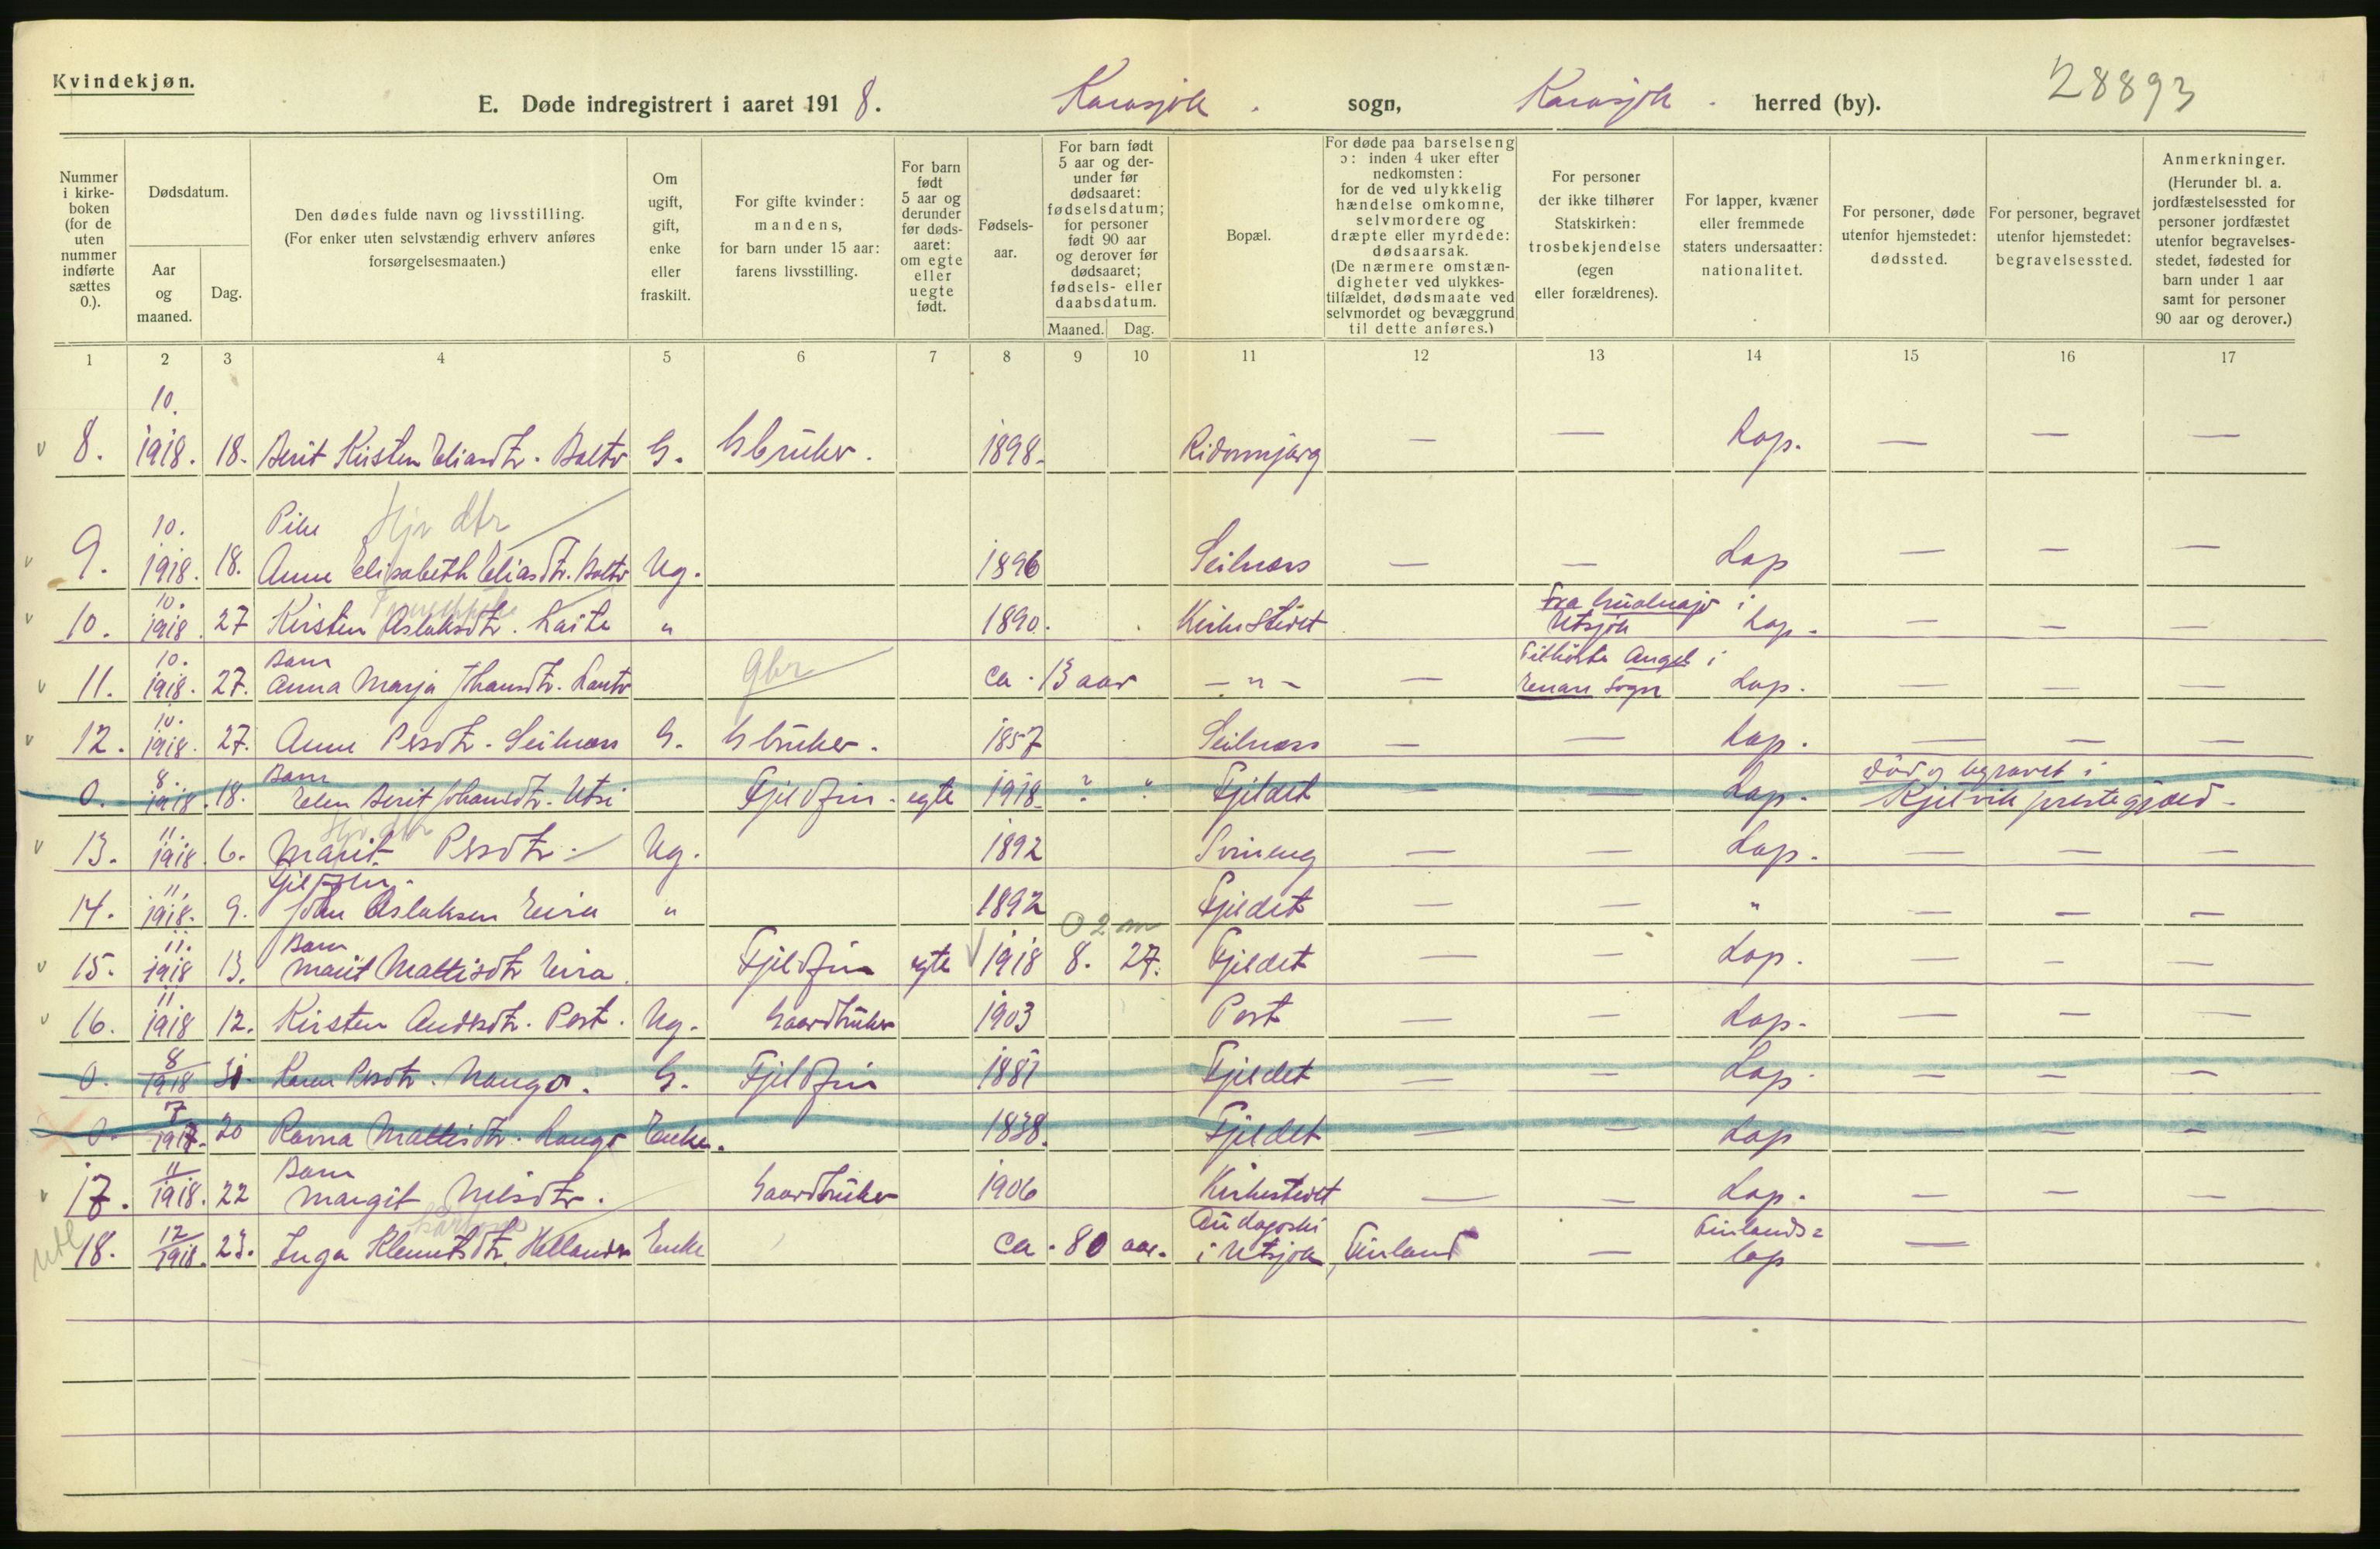 Kvindekjøn.
E. Døde indregistrert i aaret 1918. Karasjok. sogn, Karasjok. herred (by). 28893
Nummer i kirkeboken (for de uten nummer indførte sættes 0.).
Dødsdatum.
Aar og maaned.
Dag.
Den dødes fulde navn og livsstilling. (For enker uten selvstændig erhverv anføres forsørgelsesmaaten.)
Om ugift, gift, enke eller fraskilt.
For gifte kvinder: mandens, for barn under 15 aar: farens livsstilling.
For barn født 5 aar og derunder før dødsaaret: om egte eller uegte født.
Fødselsaar.
For barn født 5 aar og derunder før dødsaaret: fødselsdatum; for personer født 90 aar og derover før dødsaaret; fødsels- eller daabsdatum.
Maaned. Dag.
Bopæl.
For døde paa barselseng ɔ: inden 4 uker efter nedkomsten: for de ved ulykkelig hændelse omkomne, selvmordere og dræpte eller myrdede: dødsaarsak. (De nærmere omstændigheter ved ulykkestilfældet, dødsmaate ved selvmordet og bevæggrund til dette anføres.)
For personer der ikke tilhører Statskirken: trosbekjendelse (egen eller forældrenes).
For lapper, kvæner eller fremmede staters undersaatter: nationalitet.
For personer, døde utenfor hjemstedet: dødssted.
For personer, begravet utenfor hjemstedet: begravelsessted.
Anmerkninger. (Herunder bl. a. jordfæstelsessted for personer jordfæstet utenfor begravelsesstedet, fødested for barn under 1 aar samt for personer 90 aar og derover.)
1 2 3 4 5 6 7 8 9 10 11 12 13 14 15 16 17
8. 10. 1918. 18. Berit Kirsten Eliasdtr. Balto G. Gbruker. 1898. Ridonnjarg — — Lap. — — —
Pike Hjv dtr
9. 10. 1918. 18. Anne Elisabeth Eliasdtr. Balto Ug. 1896 Seilnæs — — Lap — — —
10. 10. 1918. 27 Kirsten Aslaksdtr. Laiti „ 1890. Kirkestedet Fra i Utsjok Lap. — — —
Barn
11. 10. 1918. 27. Anna Marja Johansdtr. Lanto gbr ca. 13 aar — „ — — Tilhørte Angel i Enare Sogn Lap. — — —
12. 10. 1918. 27. Anne Persdtr. Seilnæs G. Gbruker. 1857 Seilnæs — — Lap. — — —
Barn
0. 8. 1918. 18. Elen Berit Johansdtr. Utsi Fjeldfin egte 1918 ? „ Fjeldet — — Lap. død og begravet i Kjelvik prestegjæld.
Hjv dtr
13. 11. 1918. 6. Marit Persdtr. Ug. 1892 — — Lap. — — —
14. 11. 1918. 9. Aslaksen Eira „ 1892 Fjeldet — — „ — — —
0 2 m
Barn
15. 11. 1918 13. Marit Mattisdtr Eira. Fjeldfin egte 1918 8. 27. Fjeldet — — Lap. — — —
16. 11. 1918 12. Kirsten Andersdtr. Port. Ug. Gaardbruker 1903 Port — — Lap. — — —
0. 8 1918 31. Karen Persdtr. Nango. G. Fjeldfin 1881 Fjeldet — — Lap. — — —
0. 7 1917. 20 Ravna Mattisdtr. Lango Enke. 1838. Fjeldet — — Lap — — —
Barn
17. 11 1918. 22 Margit Nilsdtr. Gaardbruker 1906 Kirkestedet — — Lap. — — —
utl 18. 12 1918. 23. Inga Klemetsdtr. Hellander Enke ca. 80 aar. i Utsjok, Finland — Finlands= lap —